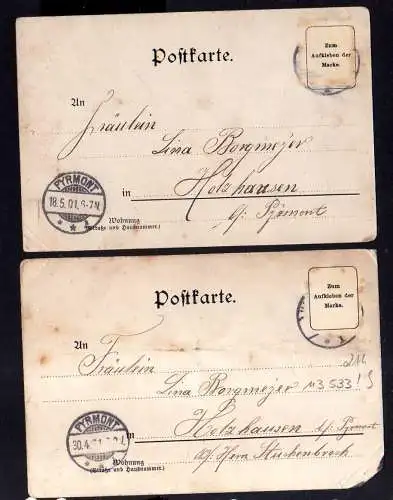 Postkarte.
Zum
Aufkleben der
Marke.
An
Fräulein
Lina Borgmeyer
in Holzhausen
b/ Pyrmont
PYRMONT
18.5.01. 6-7 N.
Wohnung
(Straße und Hausnummer.)
Postkarte.
Zum
Aufkleben der
Marke.
An
Fräulein
Lina Borgmeyer M3 533!
in Holzhausen b/ Pyrmont
PYRMONT
30.4.
Wohnung
(Straße und Hausnummer.)
Herrn